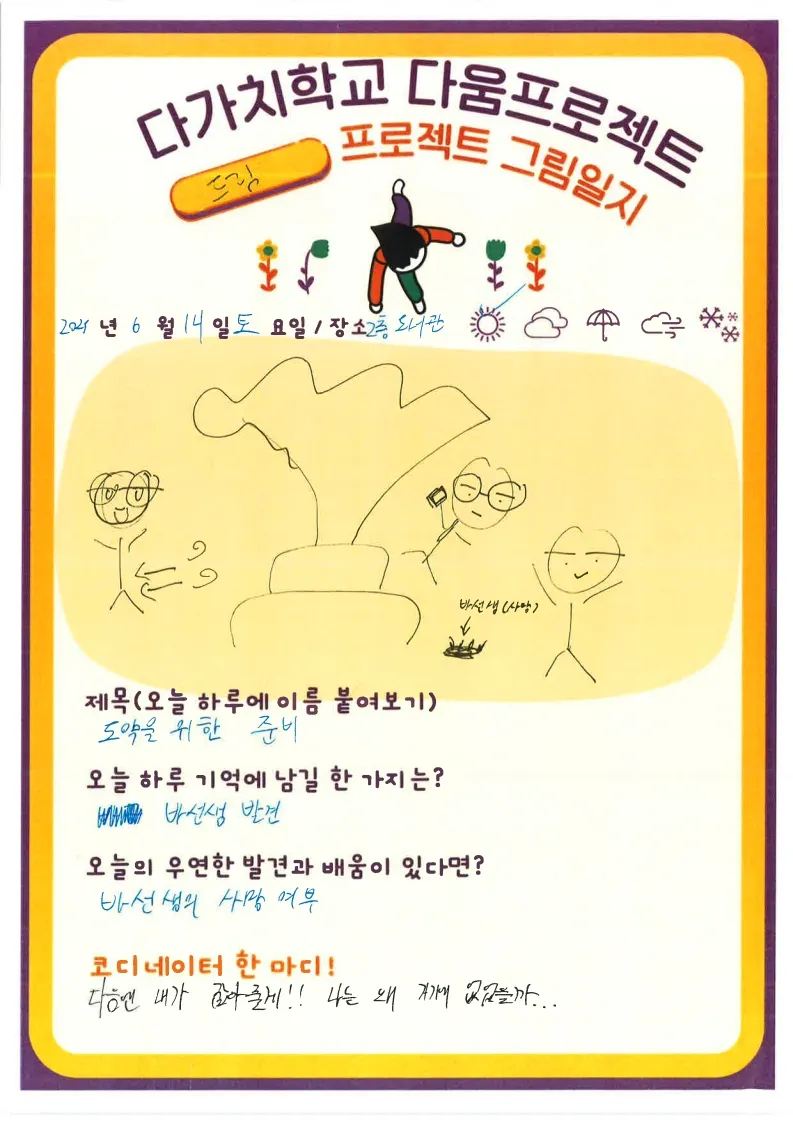 다가치학교 다움프로젝트
프로젝트 그림일지
드림
년 6 월 14 일 토 요일 / 장소 2층
바선생(사망)
제목(오늘 하루에 이름 붙여보기)
도약을 위한 준비
오늘 하루 기억에 남길 한 가지는?
바선생 발견
오늘의 우연한 발견과 배움이 있다면?
바선생의 사망 여부
코디네이터 한 마디!
다음엔 내가 잡아줄게!! 나는 왜 거기에 없었을까...